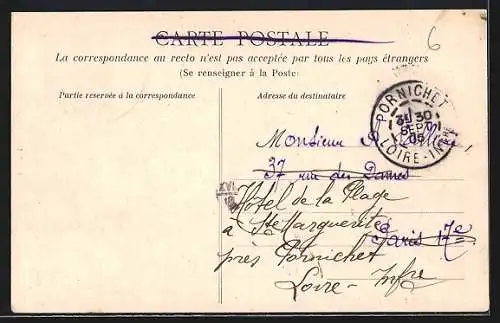 CARTE POSTALE
6
La correspondance au recto n'est pas acceptée par tous les pays étrangers
(Se renseigner à la Poste)
Partie reservée à la correspondance
Adresse du destinataire
PORNICHET
30
SEPT
05
LOIRE-INFRE
Monsieur
37 rue des Dames
XVI
18
Hôtel de la Plage
à Ste Marguerite
Paris 17e
près Pornichet
Loire-Infre